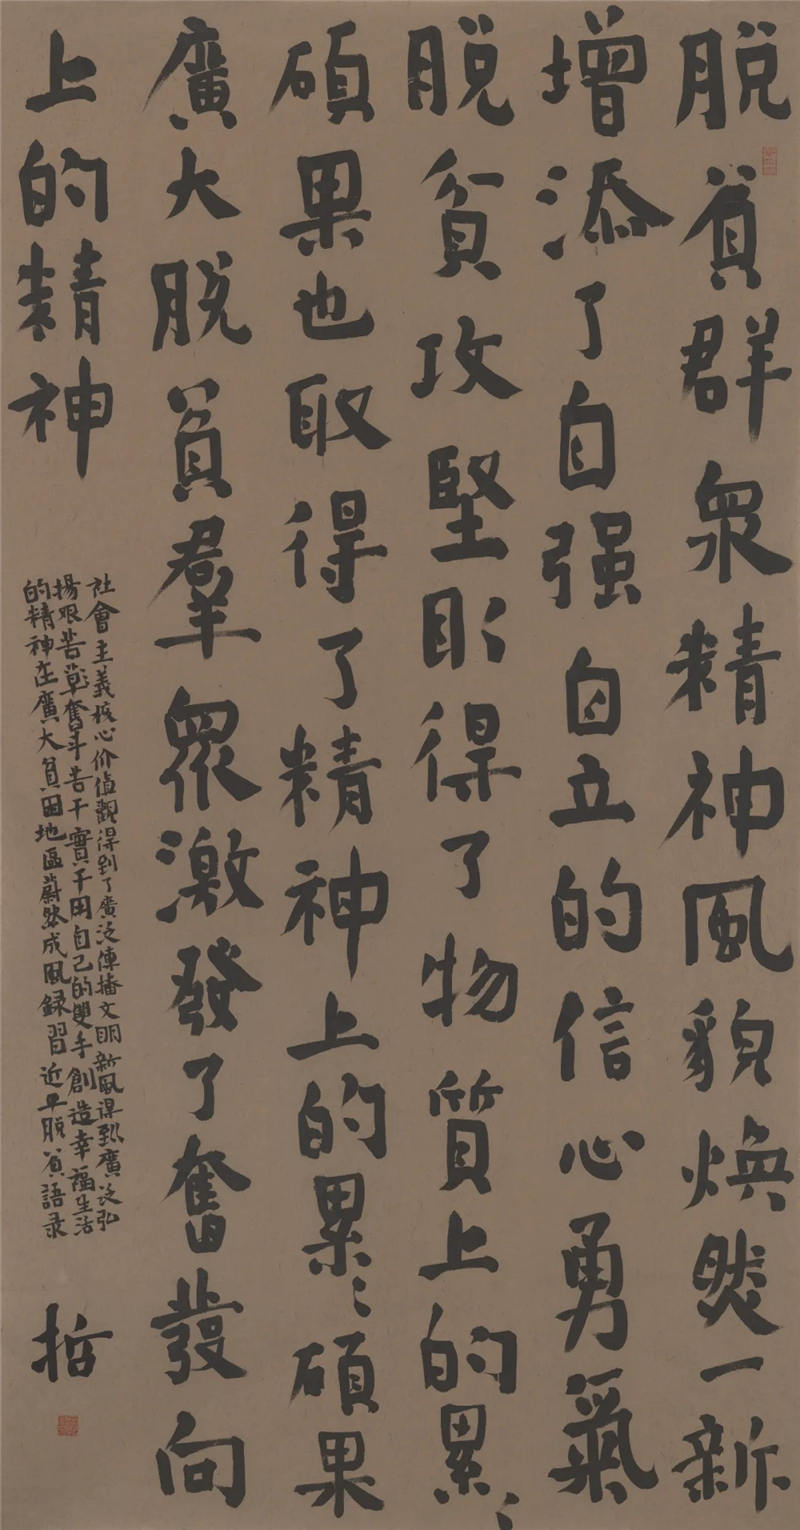 脱貧群衆精神風貌煥然一新
增添了自强自立的信心勇氣
脱貧攻堅取得了物質上的累〻
碩果也取得了精神上的累〻碩果
廣大脱貧羣眾激發了奮發向
上的精神
社會主義核心价值觀得到了廣泛傳播文明新風得到廣泛弘
揚艰苦奮斗苦干實干用自己的雙手創造幸福生活
的精神在廣大貧困地區蔚然成風録習近平脱貧語录
哲